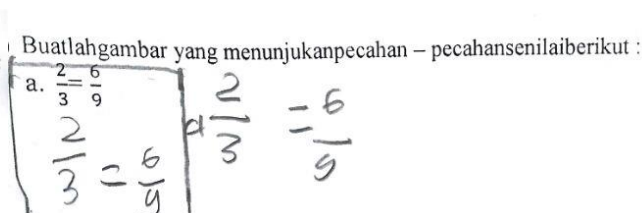 Buatlahgambar yang menunjukanpecahan – pecahansenilaiberikut :
a. 2/3 = 6/9
2/3 = 6/9
a 2/3 = 6/9